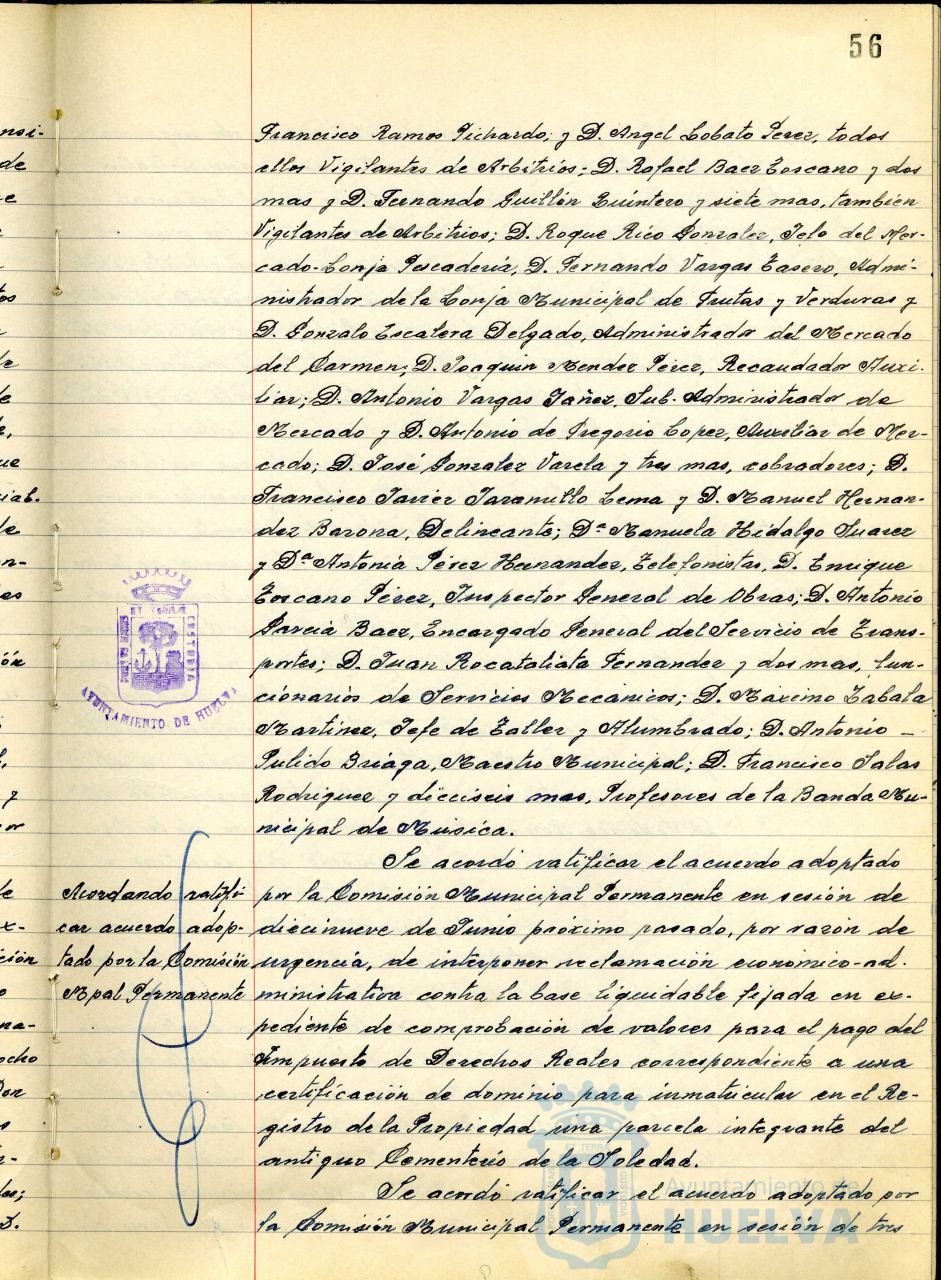 56
Francisco Ramos Pichardo; y D. Angel Lobato Perez, todos
ellos Vigilantes de Arbitrios; D. Rafael Baez Toscano y dos
mas y D. Fernando Guillén Quintero y siete mas, también
Vigilantes de Arbitrios; D. Roque Rico Gonzalez, Jefe del Mer-
cado-Lonja Pescaderia, D. Fernando Vargas Casero, Admi-
nistrador de la Lonja Municipal de Frutas y Verduras y
D. Gonzalo Escalera Delgado, Administrador del Mercado
del Carmen; D. Joaquin Mendez Pérez, Recaudador Auxi-
liar; D. Antonio Vargas Yañez, Sub-Administrador de
Mercado y D. Antonio de Gregorio Lopez, Auxiliar de Mer-
cado; D. José Gonzalez Varela y tres mas, cobradores; D.
Francisco Javier Jaramillo Lema y D. Manuel Hernan-
dez Barona, Delineante; Dª Manuela Hidalgo Suarez
y Dª Antonia Pérez Hernandez, Telefonistas, D. Enrique
Toscano Pérez, Inspector General de Obras; D. Antonio
Garcia Baez, Encargado General del Servicio de Trans-
portes; D. Juan Rocataliata Fernandez y dos mas, fun-
cionarios de Servicios Mecánicos; D. Máximo Zabala
Martinez, Jefe de Taller y Alumbrado; D. Antonio –
Pulido Briaga, Maestro Municipal; D. Francisco Salas
Rodriguez y dieciseis mas, Profesores de la Banda Mu-
nicipal de Música.
AYUNTAMIENTO DE HUELVA
Se acordó ratificar el acuerdo adoptado
por la Comisión Municipal Permanente en sesión de
diecinueve de Junio próximo pasado, por razón de
urgencia, de interponer reclamación económico-ad-
ministrativa contra la base liquidable fijada en ex-
pediente de comprobación de valores para el pago del
Impuesto de Derechos Reales correspondiente a una
certificación de dominio para inmatricular en el Re-
gistro de la Propiedad una parcela integrante del
antiguo Cementerio de la Soledad.
Acordando ratifi-
car acuerdo adop-
tado por la Comisión
Mpal Permanente
Se acordó ratificar el acuerdo adoptado por
la Comisión Municipal Permanente en sesión de tres
Ayuntamiento de
HUELVA